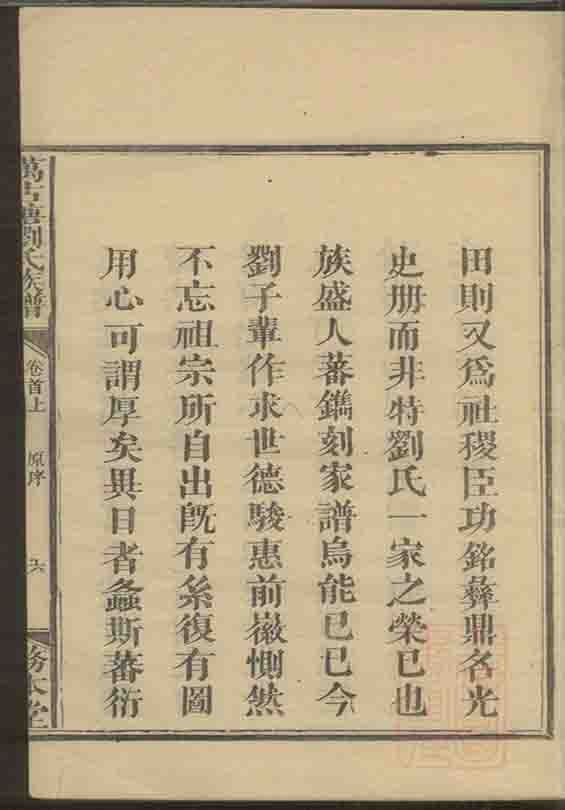 田則又爲社稷臣功銘彝鼎名光
史册而非特劉氏一家之榮已也
族盛人蕃鐫刻家譜烏能已已今
劉子輩作求世德駿惠前徽惻然
不忘祖宗所自出旣有系復有圖
用心可謂厚矣異日者螽斯蕃衍
劉氏族譜
卷首上
原序
六
務本堂